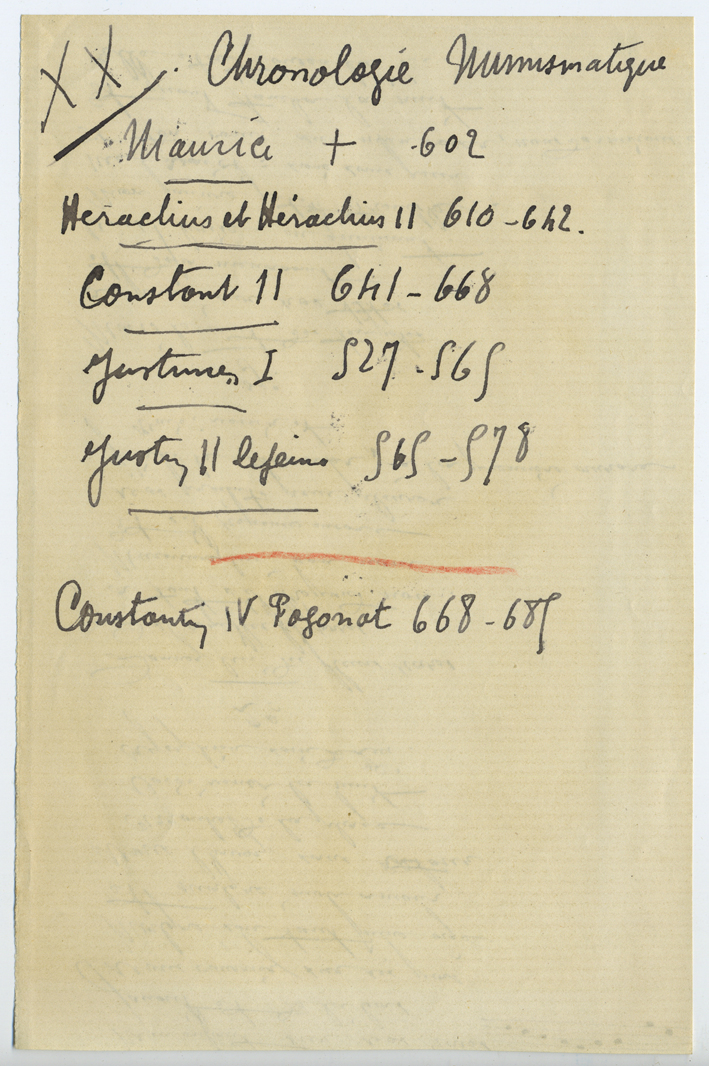 XX. Chronologie Numismatique
Maurice + 602
Heraclius et Héraclius II 610-642.
Constant II 641-668
Justinien I 527-565
Justin II le jeune 565-578
Constantin IV Pogonat 668-685